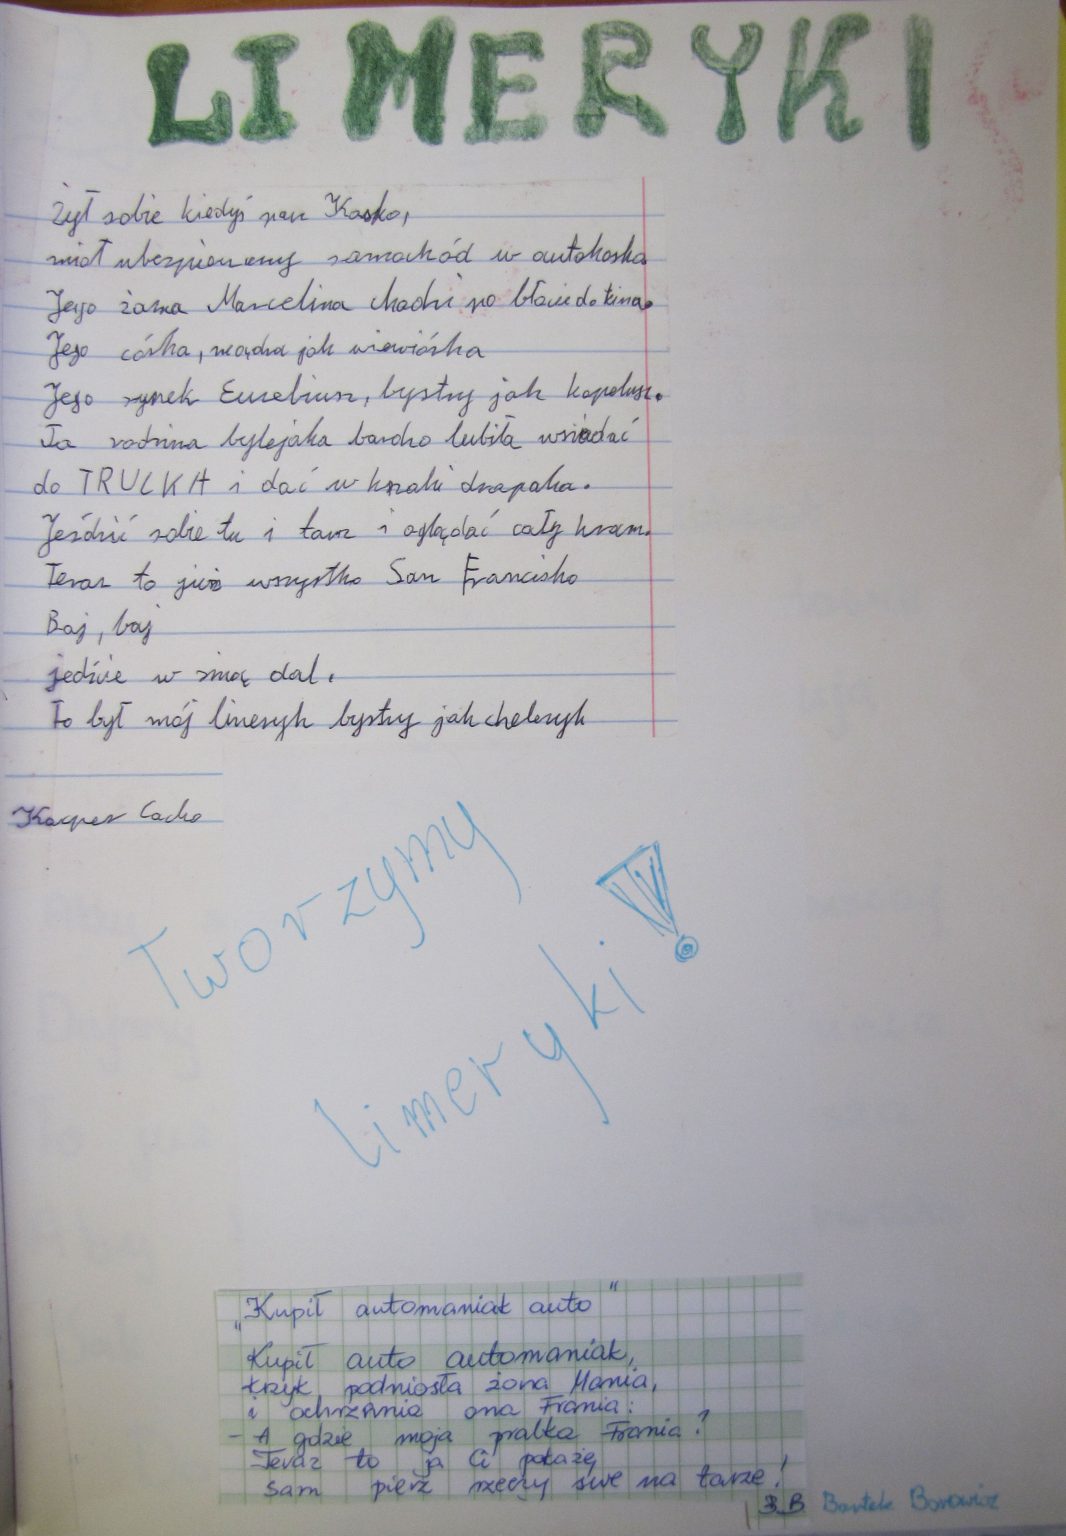 LIMERYKI
Żył sobie kiedyś pan Kasko,
miał ubezpieczony samochód w autokasko
Jego żona Marcelina chodzi po błocie do kina.
Jego córka, mądra jak wiewiórka
Jego synek Euzebiusz, bystry jak kapelusz.
Ta rodzina bylejaka bardzo lubiła wsiadać
do TRUCKA i dać w krzaki drapaka.
Jeździć sobie tu i tam i oglądać cały kram.
Teraz to już wszystko San Francisko
Baj, baj
jedzie w siną dal.
To był mój limeryk bystry jak choleryk
Kacper Cacko
Tworzymy
limeryki!
„Kupił automaniak auto"
Kupił auto automaniak,
krzyk podniosła żona Mania,
i ochrzania ona Frania:
- A gdzie moja pralka Frania?
Teraz to ja Ci pokażę
sam pierz rzeczy swe na tarze!
3B Bartek Borowicz